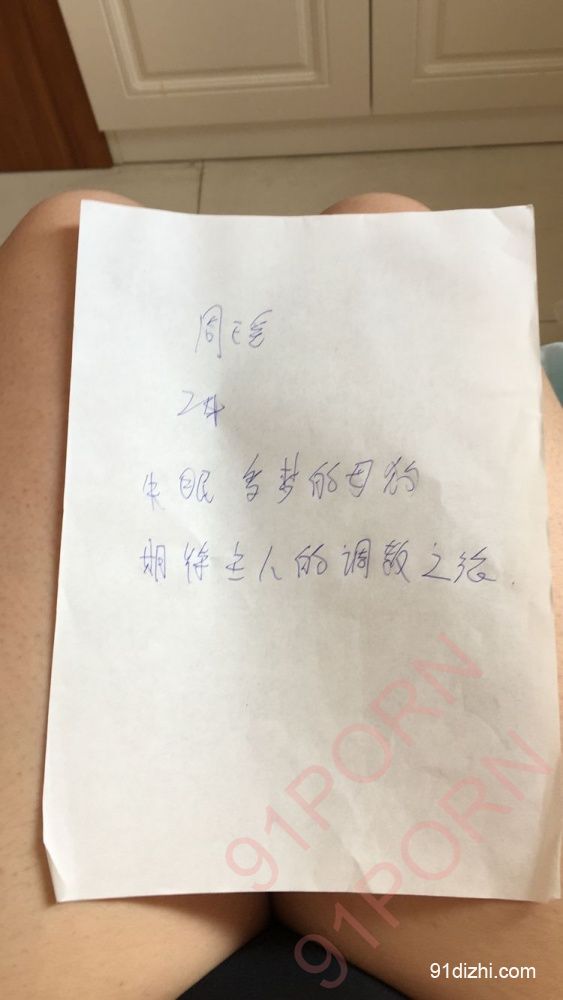 周
24
失眠多梦的母狗
期待主人的调教之旅.
91PORN
91PORN
91dizhi.com